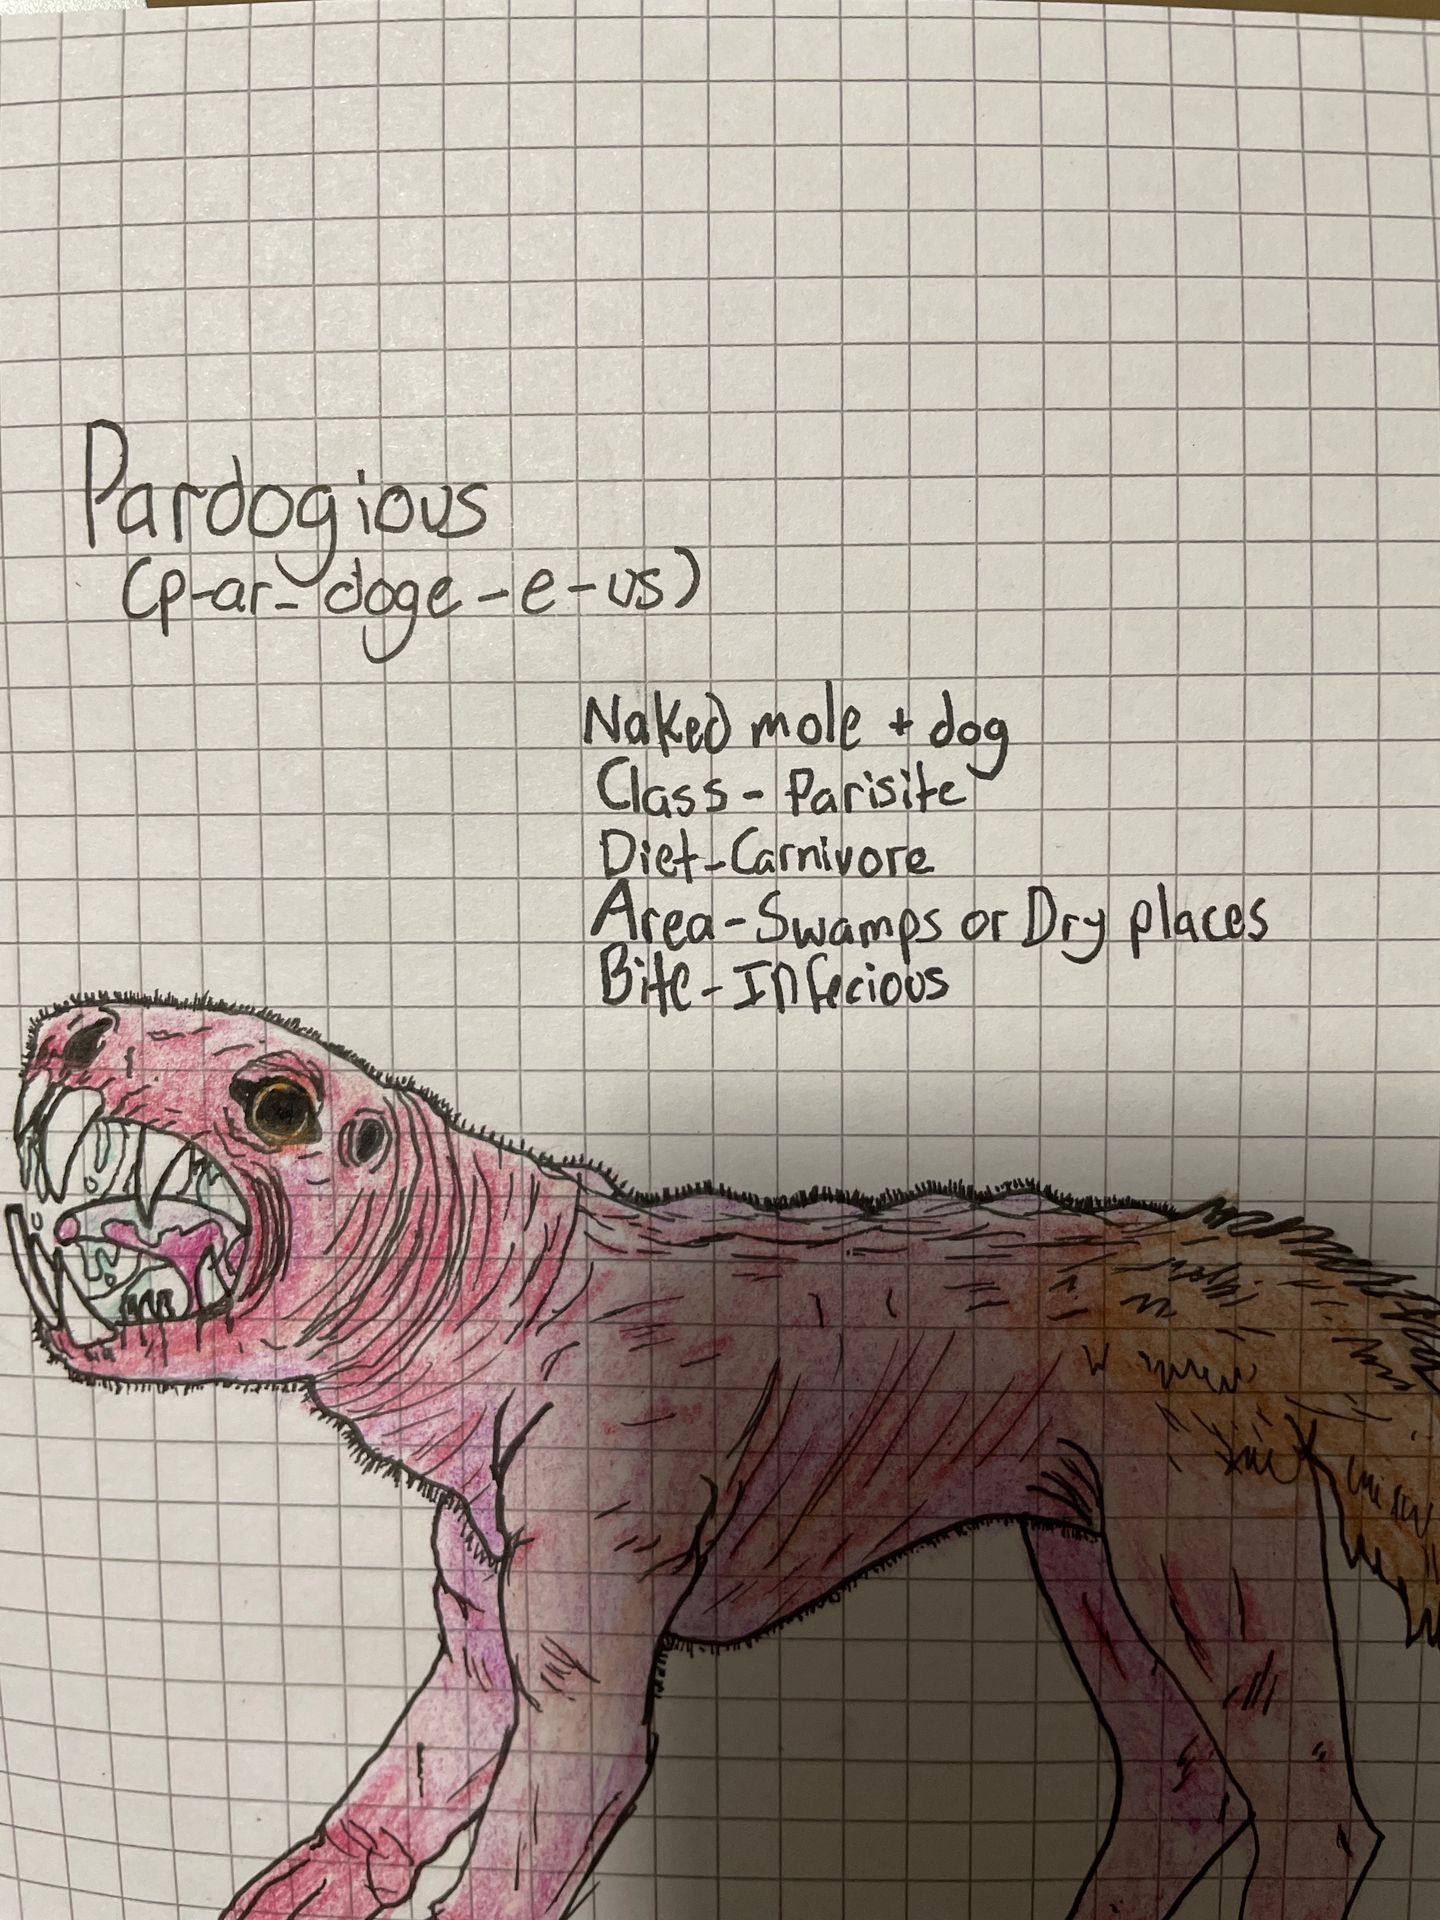 Pardogious
(p-ar-doge-e-us)
Naked mole + dog
Class-Parisite
Diet-Carnivore
Area-Swamps or Dry places
Bite-Infecious